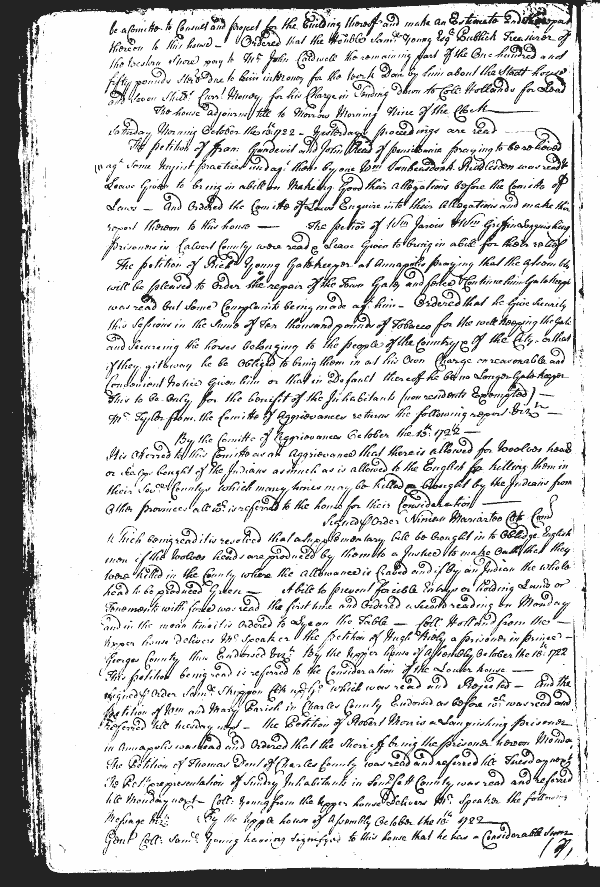 be a Comitte to Consult and project for the Building thereof and make an Estimate and Report
thereon to this house — Ordered that the Honble Sam.l Young Esq.r Publick Treasurer of
the Western shore pay to Mr. John Cadwell the remaining part of the One hundred and
fifty pounds Sterl due to him in Money for the work Done by him about the Stadt house
and eleven Shill.s Curr.t Money for his Charge in Sending down to Coll Hollands for Lead
The house adjourns till to Morrow Morning Nine of the Clock —
Saturday Morning October the 13.th 1722 — Yesterdays proceedings are read —
The petition of Fran: Gandovil and John Read of pensilvania praying to be relieved
ag.t Some Unjust practices us'd ag.t them by one Wm Vanhaesdonk Riddlesden was read &
Leave Given to bring in a bill on Making Good their Allegations before the Comitte of
Laws — and Ordered the Comitte of Laws Enquire into their Allegations and make their
report thereon to this house — The petition of Wm Jarvis & Wm Griffin Languishing
prisoners in Calvert County were read & Leave Given to bring in a bill for their relief
The petition of Rich.d Young Gatekeeper at Annapolis praying that the Assembly
will be pleased to Order the repair of the Town Gates and fence & Continue him Gatekeeper
was read but Some Complaints being made ag.t him — Ordered that he Give Security
this Sessions in the Summ of Ten thousand pounds of Tobacco for the well keeping the Gate
and securing the horses belonging to the people of the Country & of the City, or that
if they git away he be Obliged to bring them in at his Own Charge on reasonable and
Convenient Notice Given him or that in Default thereof he be no Longer Gate keeper
This to be Only for the benefit of the Inhabitants (non residents Exempted) —
Mr. Tyler from the Comitte of Aggrievances returns the following report Viz.t
By the Comitte of Aggrievances October the 13.th 1722 —
It is Offerred to this Comitte as an Aggrievance that there is allowed for Woolves heads
or Scalps bought of the Indians as much as is allowed to the English for killing them in
their Sev.ll Countys which many times may be killed & bought by the Indians from
Other provinces all w.ch is referred to the house for their Consideration —
Signed p Order Ninian Mariartee Clk Com.
Which being read it is resolved that a Supplementary bill be brought in to Oblidge English
men if the Woolves heads are produced by them to a Justice to make Oath that they
were killed in the County where the Allowance is Craved and if by an Indian the whole
head to be produced Green — A bill to prevent forcible Entrys or holding Lands or
Tenements with force was read the first time and Ordered a Second reading on Monday
and in the mean time it is Ordered to Lye on the Table — Coll Holland from the
upper house delivers Mr. Speaker the petition of Hugh Holy a prisoner in prince
Georges County thus Endorsed Viz.t By the upper house of Assembly October the 13.th 1722
This petition being read is referred to the Consideration of the Lower house —
Signed p Order Sam.l Skippon Clk up. h. which was read and Rejected — And the
petition of Wm and Mary Parish in Charles County Endorsed as before w.ch was read and
referred till tuesday next — the Petition of Robert Morris a Languishing prisoner
in Annapolis was read and Ordered that the Sherriff bring the prisoner hereon Monday
The Petition of Thomas Dent of Charles County was read and referred till Tuesday next
The Petn representation of Sundry Inhabitants in Somersett County was read and referred
till Monday next — Coll: Young from the upper house Delivers Mr. Speaker the following
Message Viz.t By the upper house of Assembly October the 13.th 1722
Gent Coll: Sam.l Young having Signifyed to this house that he has a Considerable Summ